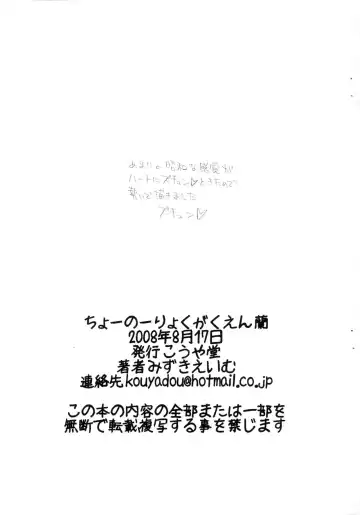 あまりの昭和な無駄が
ハートにプチュン♡ときたので
勢いで描きました
プチュン♡
ちょーのーりょくがくえん蘭
2008年8月17日
発行こうや堂
著者みずきえいむ
連絡先kouyadou@hotmail.co.jp
この本の内容の全部または一部を
無断で転載複写する事を禁じます